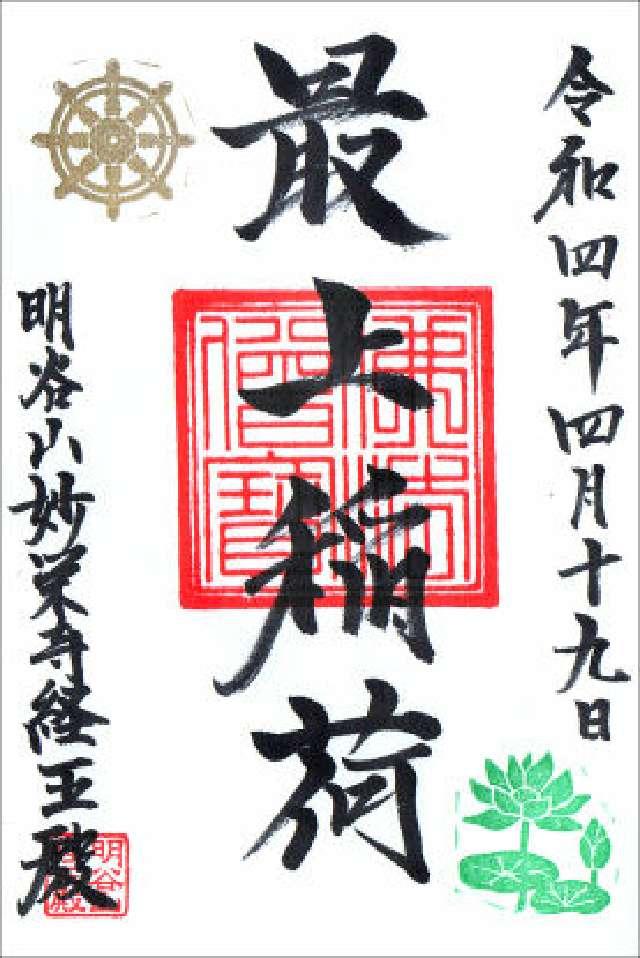 令和四年四月十九日
最上稲荷
佛法僧寳
明谷山妙栄寺経王殿